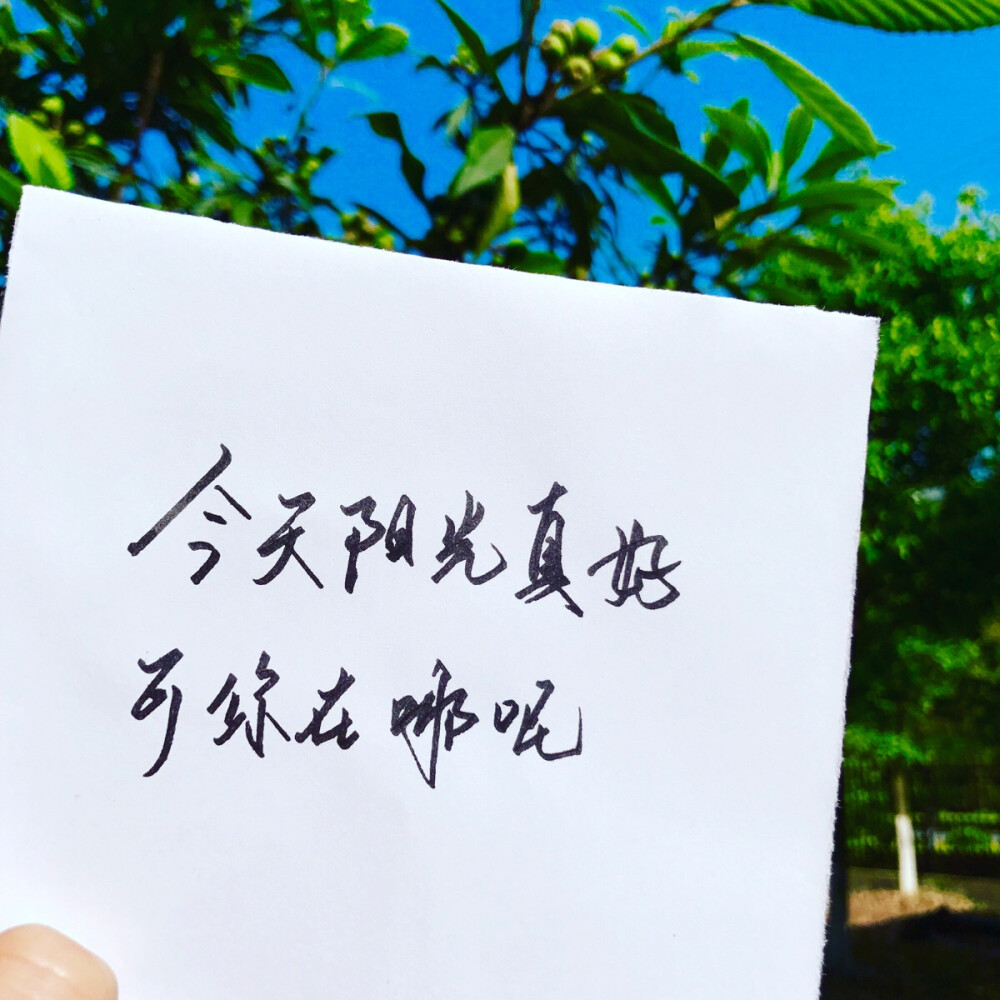 今天阳光真好
可你在哪呢